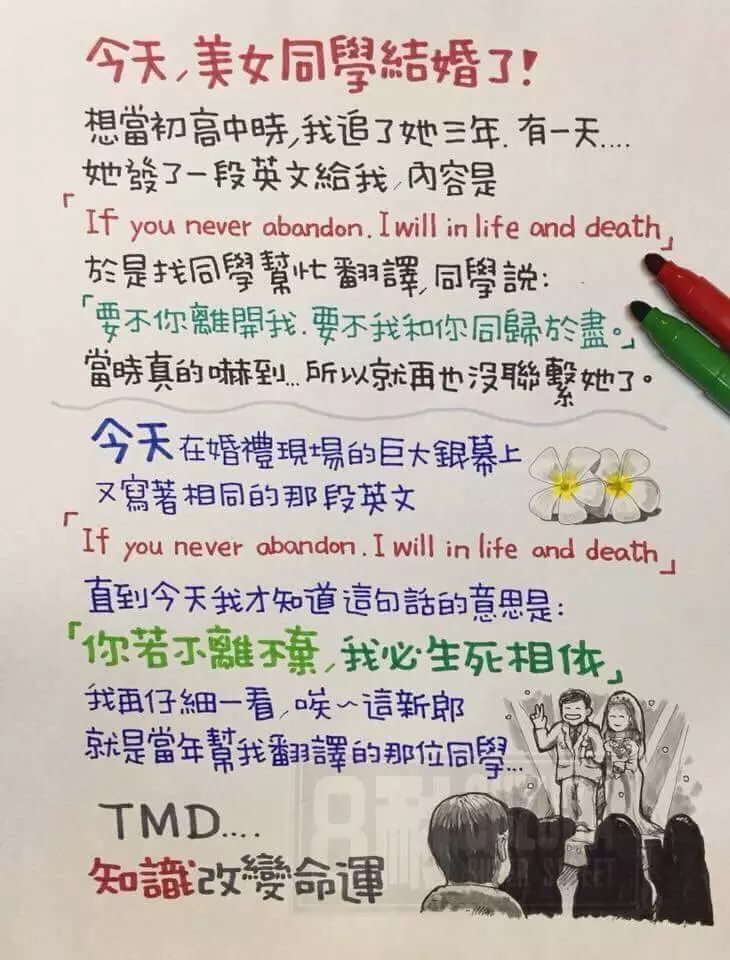 今天,美女同學結婚了!
想當初高中時,我追了她三年.有一天....
她發了一段英文給我,內容是
「If you never abandon. I will in life and death」
於是找同學幫忙翻譯,同學說:
「要不你離開我.要不我和你同歸於盡。」
當時真的嚇到...所以就再也沒聯繫她了。
今天在婚禮現場的巨大銀幕上
又寫著相同的那段英文
「If you never abandon. I will in life and death」
直到今天我才知道這句話的意思是:
「你若不離不棄,我必生死相依」
我再仔細一看,唉~這新郎
就是當年幫我翻譯的那位同學...
TMD....
知識改變命運